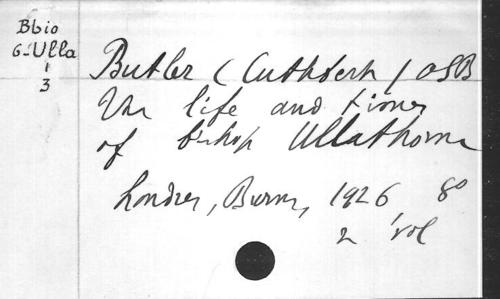 Bbio
6-Ulla
1
3
Butler (Cuthbert) OSB
The life and times
of bishop Ullathorne
Londres, Burns, 1926 8°
2 vol